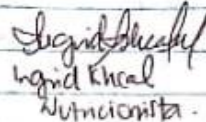 Ingrid
Ingrid Khcal
Nutricionista.